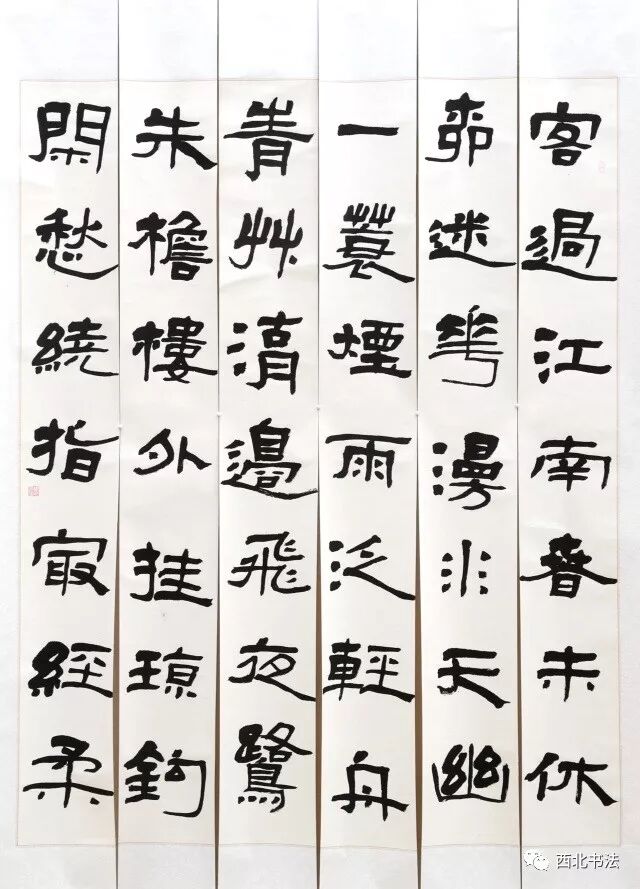 客過江南春未休
柳迷花漫水天幽
一蓑煙雨泛輕舟
青艸邊飛夜鷺
朱檐樓外挂琼鉤
閑愁繞指最經柔
西北书法